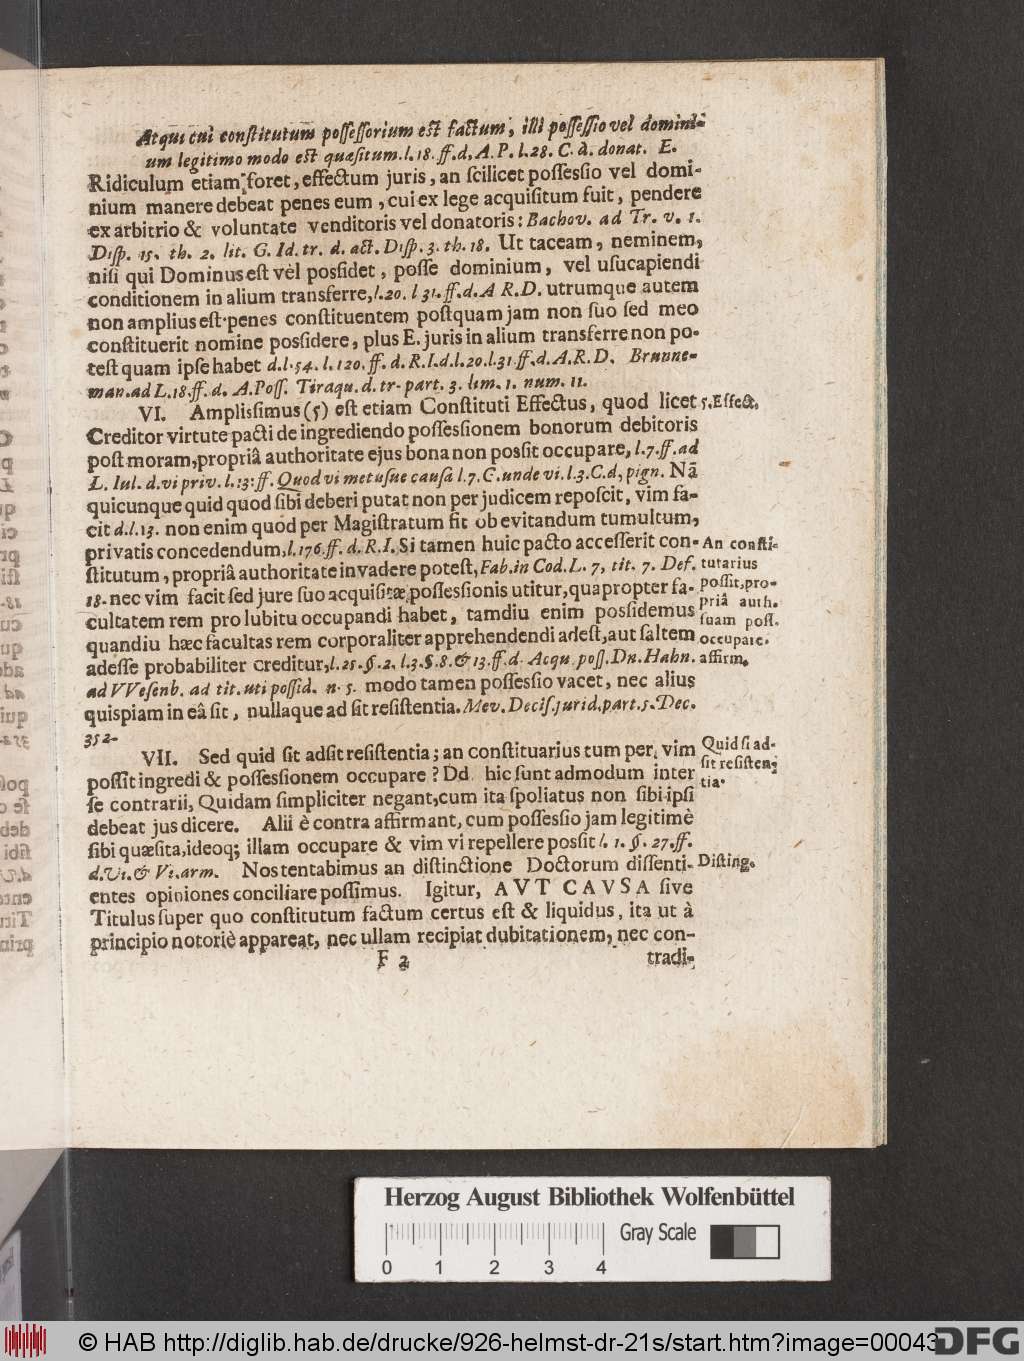 Atqui cui constitutum possessorium est factum, illi possessio vel domini-
um legitimo modo est quæsitum. l. 18. ff. d. A. P. l. 28. C. à. donat. E.
Ridiculum etiam foret, effectum juris, an scilicet possessio vel domi-
nium manere debeat penes eum, cui ex lege acquisitum fuit, pendere
ex arbitrio & voluntate venditoris vel donatoris: Bachov. ad Tr. v. 1.
Disp. 15. th. 2. lit. G. Id. tr. d. act. Disp. 3. th. 18. Ut taceam, neminem,
nisi qui Dominus est vel possidet, posse dominium, vel usucapiendi
conditionem in alium transferre, l. 20. l 31. ff. d. A R. D. utrumque autem
non amplius est penes constituentem postquam jam non suo sed meo
constituerit nomine possidere, plus E. juris in alium transferre non po-
test quam ipse habet d. l. 54. l. 120. ff. d. R. I. d. l. 20. l. 31 ff. d. A. R. D. Brunne-
man. ad L. 18. ff. d. A. Poss. Tiraqu. d. tr. part. 3. lim. 1. num. 11.
VI. Amplissimus (5) est etiam Constituti Effectus, quod licet
5. Effect.
Creditor virtute pacti de ingrediendo possessionem bonorum debitoris
post moram, propriâ authoritate ejus bona non possit occupare, l. 7. ff. ad
L. Iul. d. vi priv. l. 13: ff. Quod vi metusue causa l. 7. C. unde vi. l. 3. C. d, pign. Nã
quicunque quid quod sibi deberi putat non per judicem reposcit, vim fa-
cit d. l. 13. non enim quod per Magistratum fit ob evitandum tumultum,
privatis concedendum, l. 176. ff. d. R. I. Si tamen huic pacto accesserit con-
stitutum, propriâ authoritate invadere potest, Fab. in Cod. L. 7, tit. 7. Def.
18. nec vim facit sed jure suo acquisitæ possessionis utitur, quapropter fa-
cultatem rem pro lubitu occupandi habet, tamdiu enim possidemus
quandiu hæc facultas rem corporaliter apprehendendi adest, aut saltem
adesse probabiliter creditur, l. 25. §. 2. l. 3. §. 8. & 13. ff. d. Acqu. poss. Dn. Hahn.
An consti-
tutarius
possit, pro-
priâ auth.
suam poss.
occupare.
affirm.
ad VVesenb. ad tit. uti possid. n. 5. modo tamen possessio vacet, nec alius
quispiam in eâ sit, nullaque adsit resistentia. Mev. Decis. jurid. part. 5. Dec.
352.
VII. Sed quid sit adsit resistentia; an constituarius tum per vim
possit ingredi & possessionem occupare? Dd. hic sunt admodum inter
se contrarii, Quidam simpliciter negant, cum ita spoliatus non sibi ipsi
Quid si ad-
sit resisten-
tia.
debeat jus dicere. Alii è contra affirmant, cum possessio jam legitimè
sibi quæsita, ideoq; illam occupare & vim vi repellere possit l. 1. §. 27. ff.
d. Vi. & Vi. arm. Nos tentabimus an distinctione Doctorum dissenti-
Disting.
entes opiniones conciliare possimus. Igitur, AVT CAVSA sive
Titulus super quo constitutum factum certus est & liquidus, ita ut à
principio notoriè appareat, nec ullam recipiat dubitationem, nec con-
F 2
tradi-
Herzog August Bibliothek Wolfenbüttel
Gray Scale
0 1 2 3 4
© HAB http://diglib.hab.de/drucke/926-helmst-dr-21s/start.htm?image=00043
DFG